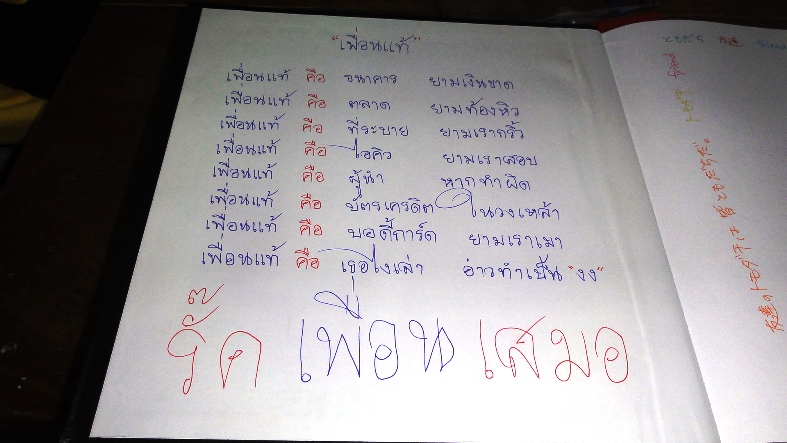 "เพื่อนแท้"
เพื่อนแท้ คือ ธนาคาร ยามเงินขาด
เพื่อนแท้ คือ ตลาด ยามท้องหิว
เพื่อนแท้ คือ ที่ระบาย ยามเรากริ้ว
เพื่อนแท้ คือ ไอคิว ยามเราสอบ
เพื่อนแท้ คือ ผู้นำ หากทำผิด
เพื่อนแท้ คือ บัตรเครดิต ในวงเหล้า
เพื่อนแท้ คือ บอดี้การ์ด ยามเราเมา
เพื่อนแท้ คือ เธอไงเล่า อ่าวทำเป็น "งง"
รั๊ก เพื่อน เสมอ
ともだち
friend